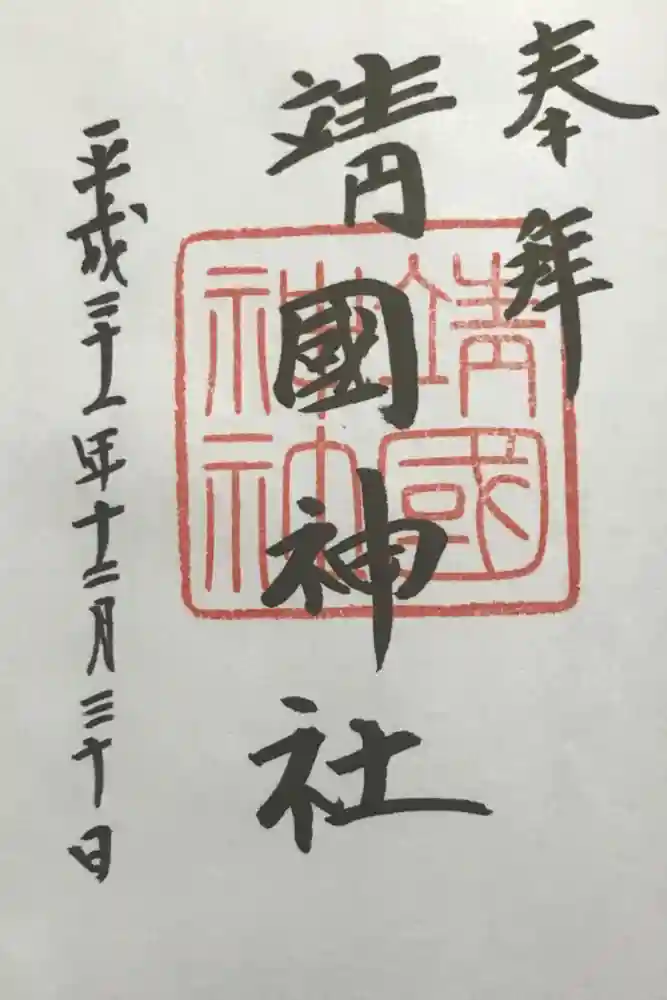 奉拜
靖國神社
平成三十一年十二月三十日
靖國
神社